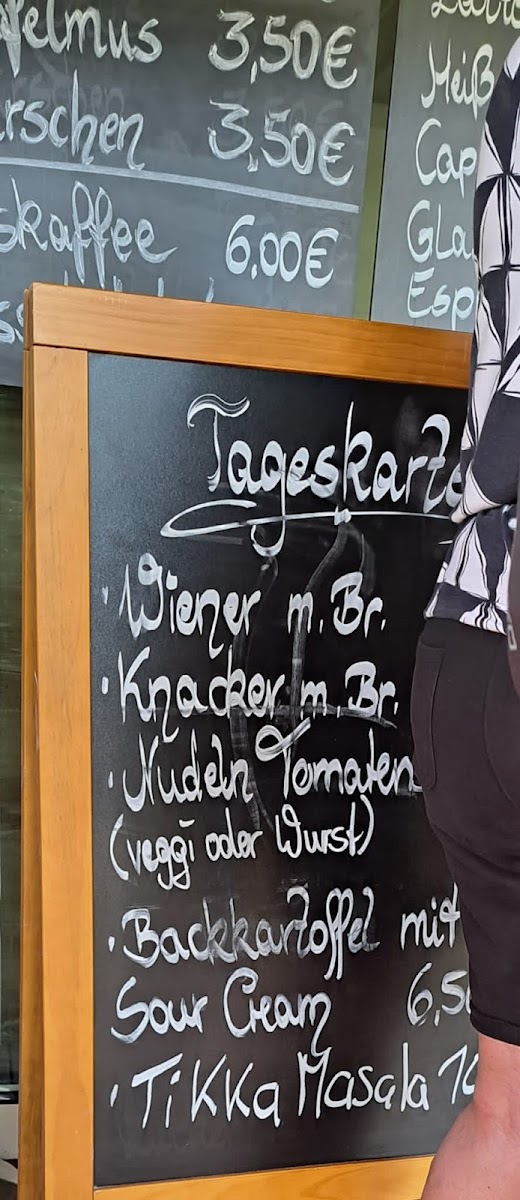 felmus 3,50€
rschen 3,50€
skaffee 6,00€
Heiß
Cap
Gla
Esp
Tageskarte
· Wiener m. Br.
· Knacker m. Br.
· Nudeln Tomaten
(veggi oder Wurst)
· Backkartoffel mit
Sour Cream 6,5
· Tikka Masala 10